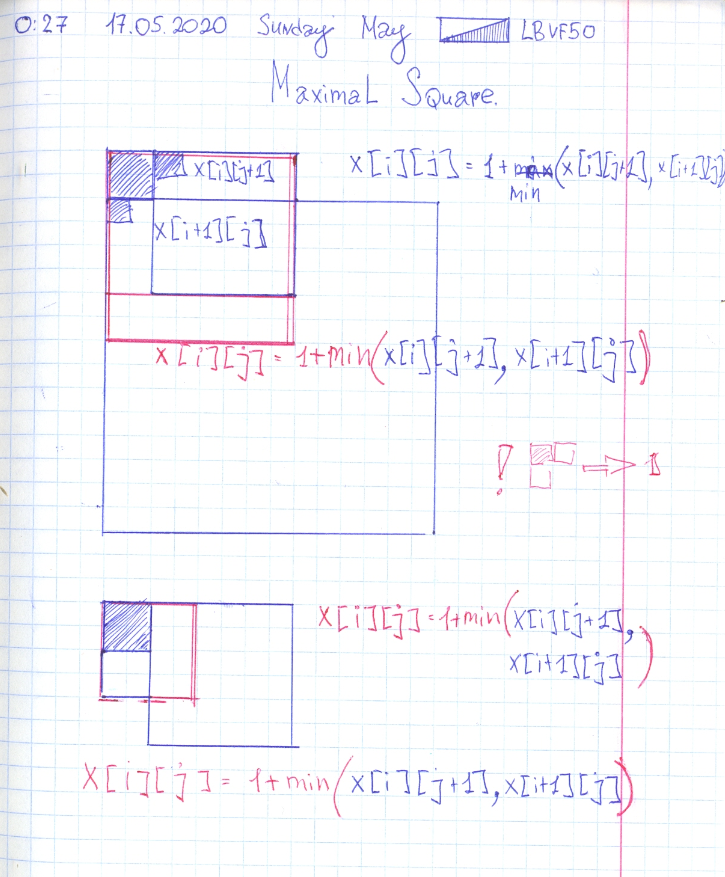 0:27 17.05.2020 Sunday May LBVF50
Maximal Square.
x[i][j+1]
x[i][j] = 1+max(x[i][j+1], x[i+1][j]
min
x[i+1][j]
x[i][j] = 1+min(x[i][j+1], x[i+1][j])
! => 1
x[i][j] = 1+min(x[i][j+1],
x[i+1][j])
x[i][j] = 1+min(x[i][j+1], x[i+1][j])